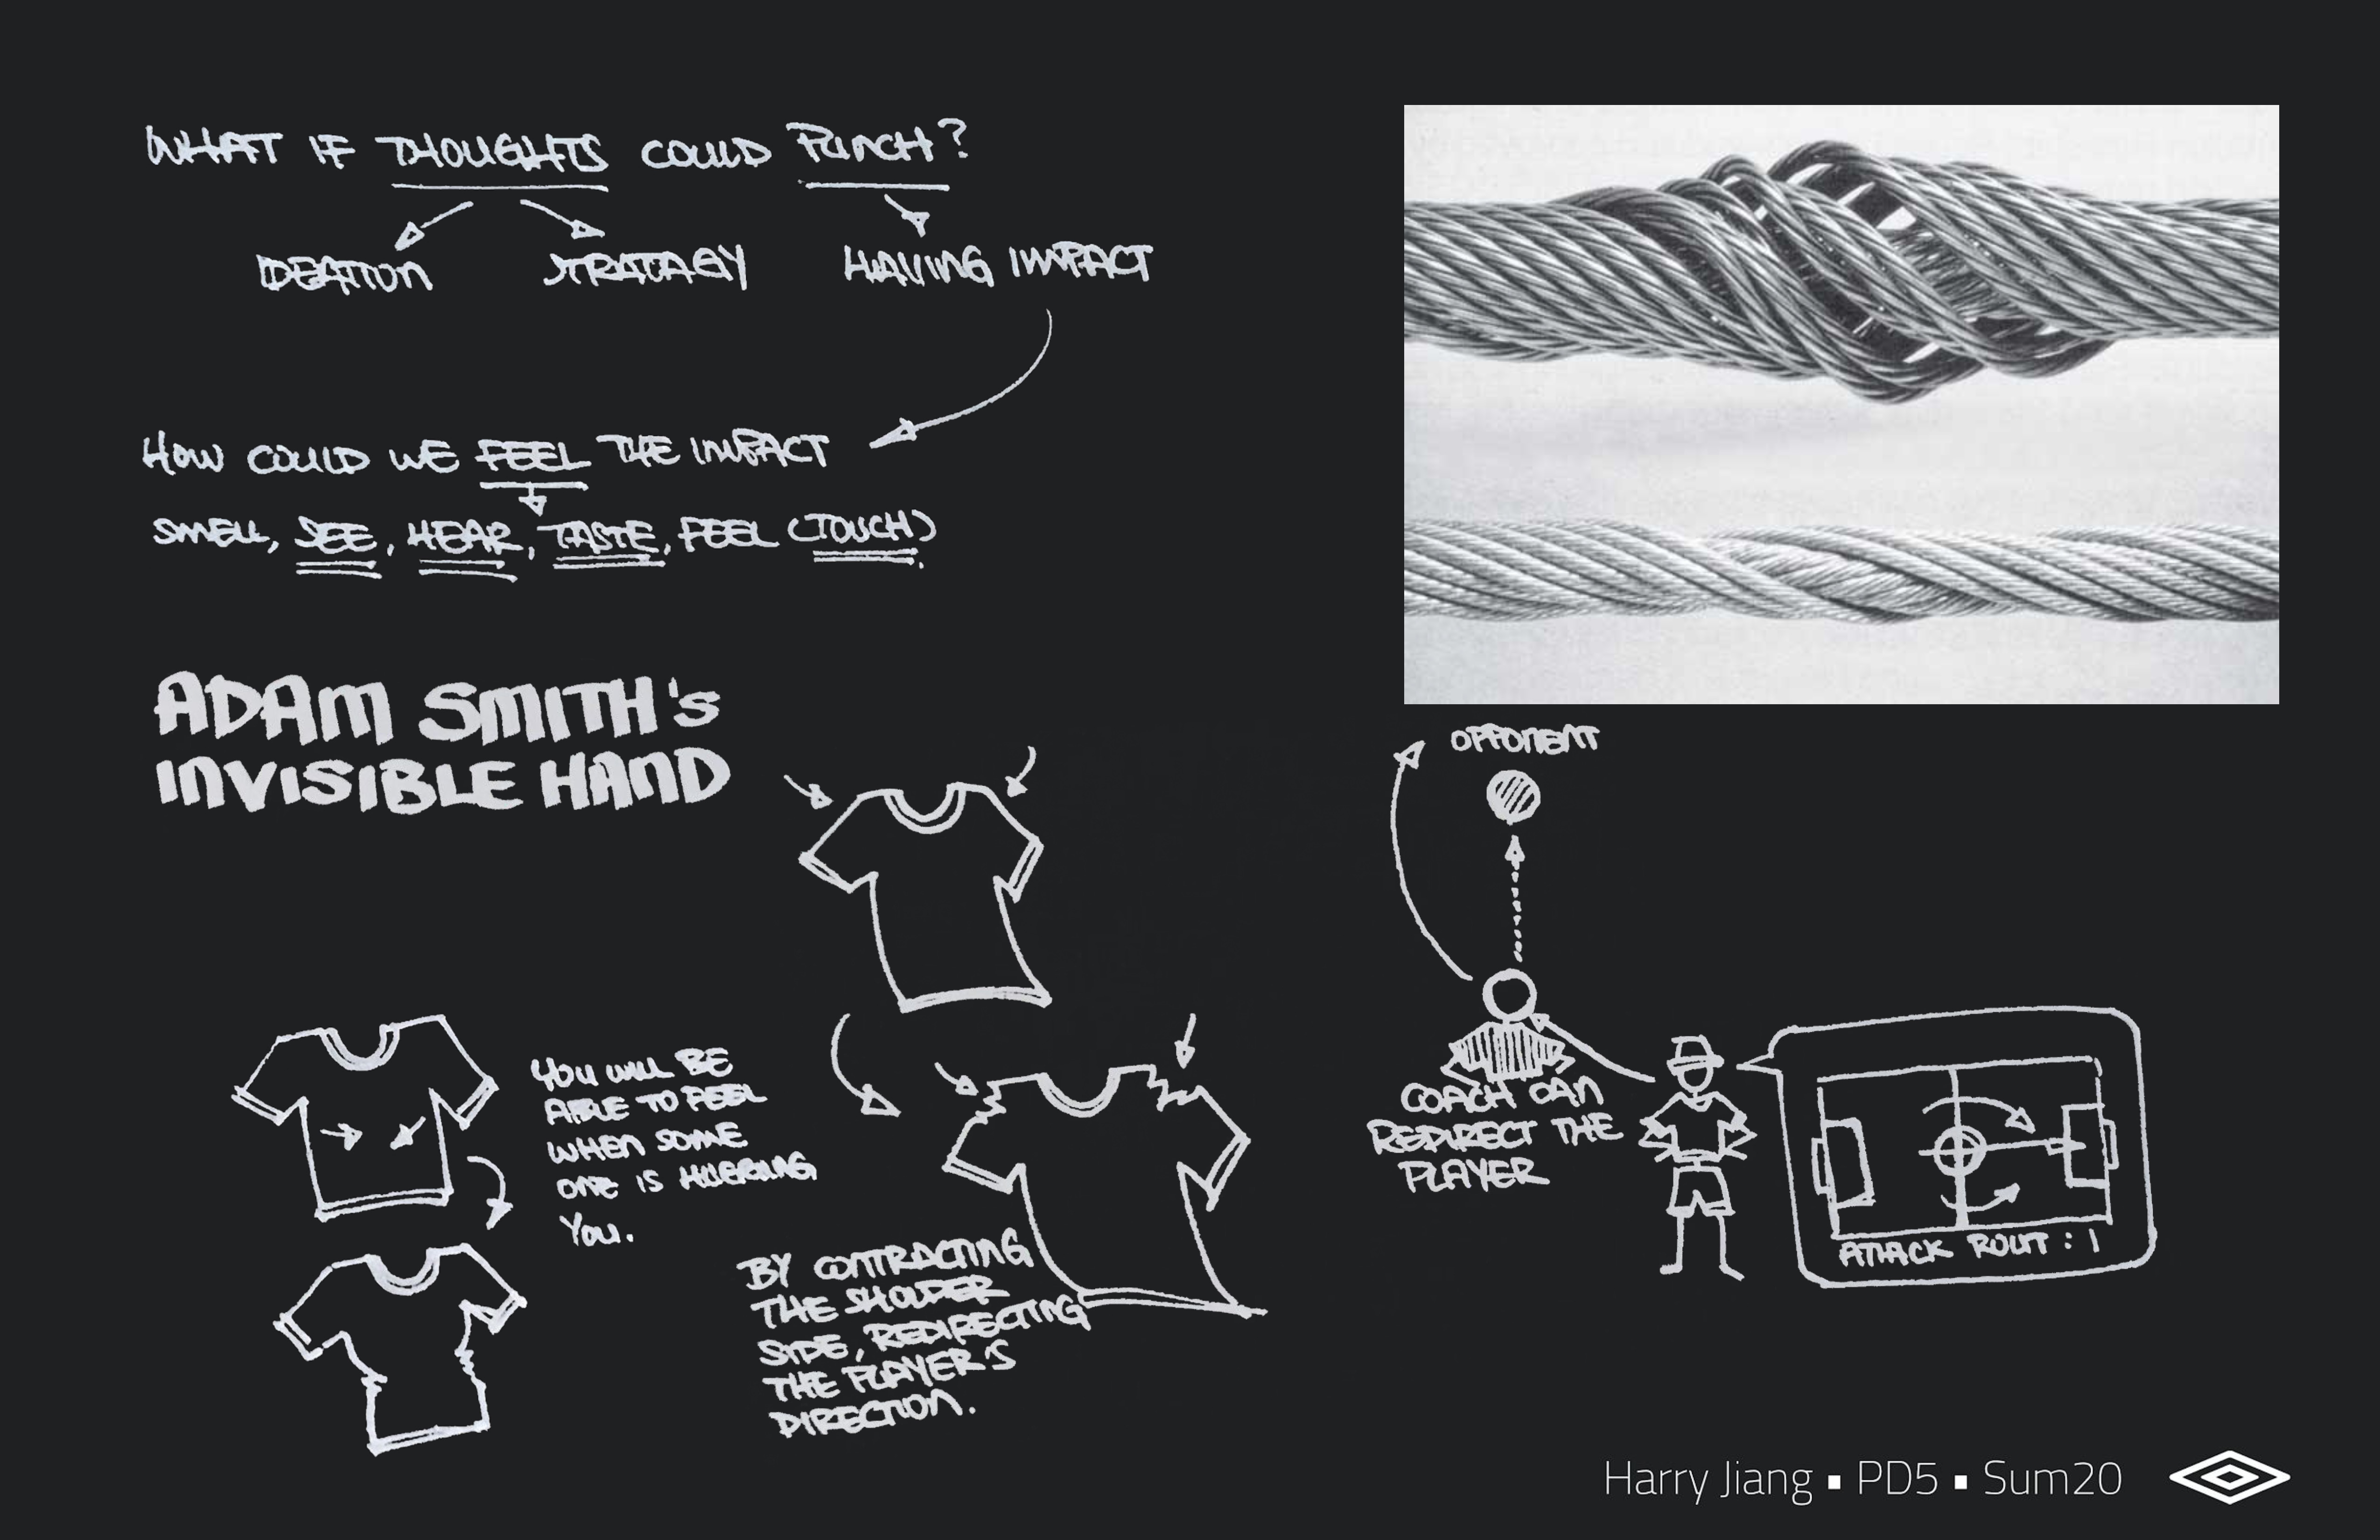 WHAT IF THOUGHTS COULD PUNCH?
IDEATION STRATAGY HAVING IMPACT
HOW COULD WE FEEL THE IMPACT
SMELL, SEE, HEAR, TASTE, FEEL (TOUCH)
ADAM SMITH'S
INVISIBLE HAND
YOU WILL BE
ABLE TO FEEL
WHEN SOME
ONE IS HUGGING
YOU.
BY CONTRACTING
THE SHOUDER
SIDE, REDIRECTING
THE PLAYER'S
DIRECTION.
OPPONENT
COACH CAN
REDIRECT THE
PLAYER
ATTACK ROUT : 1
Harry Jiang ▪ PD5 ▪ Sum20